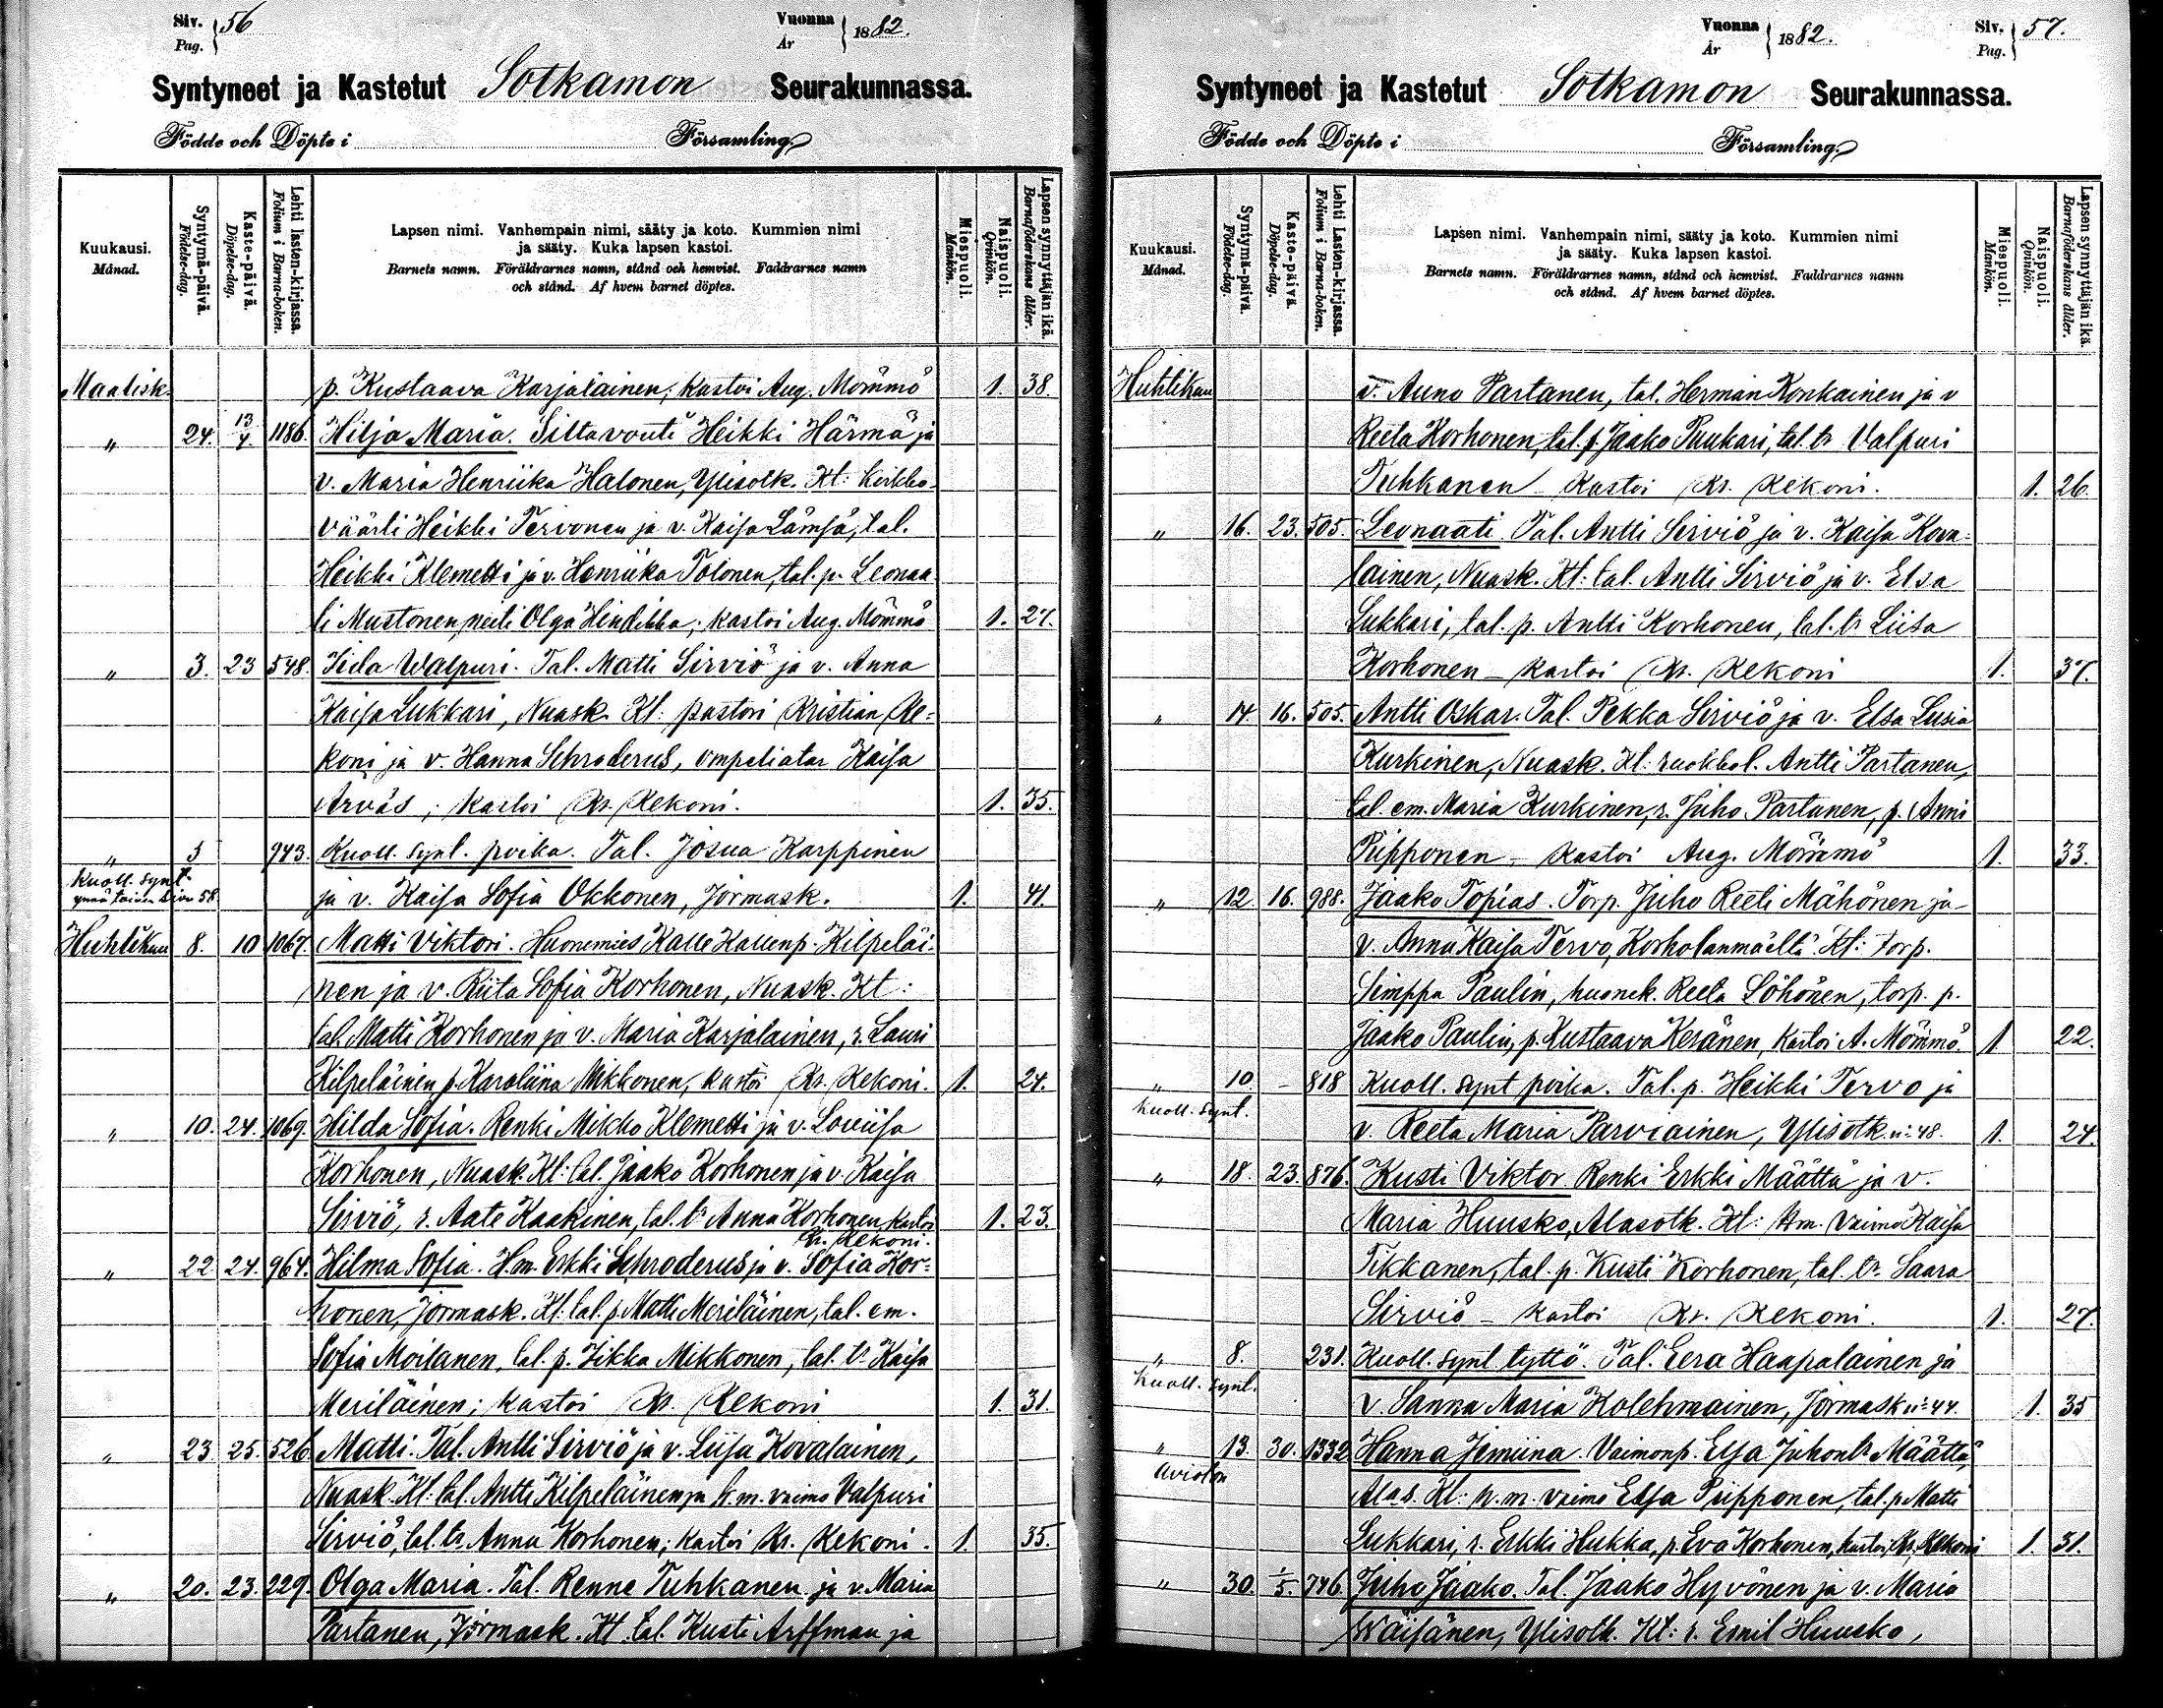 Siv. Pag. 56
Vuonna År 1882.
Syntyneet ja Kastetut Sotkamon Seurakunnassa.
Födde och Döpte i Församling.
Kuukausi. Månad.
Syntymä-päivä. Födelse-dag.
Kaste-päivä. Döpelse-dag.
Lehti lasten-kirjassa. Folium i Barna-boken.
Lapsen nimi. Vanhempain nimi, sääty ja koto. Kummien nimi
ja sääty. Kuka lapsen kastoi.
Barnets namn. Föräldrarnes namn, stånd och hemvist. Faddrarnes namn
och stånd. Af hvem barnet döptes.
Miespuoli. Mankön.
Naispuoli. Qvinkön.
Lapsen synnyttäjän ikä. Barnaföderskans ålder.
Maalisk. p. Kustaava Karjalainen; kastoi Aug. Mömmö 1. 38.
" 24. 13/4. 1186. Hilja Maria. Siltavouti Heikki Härmä ja
v. Maria Henriika Halonen, Ylisotk. Kt: kirkko-
väärti Heikki Tervonen ja v. Kaisa Lämsä, tal.
Heikki Klemetti ja v. Henriika Tolonen, tal. p. Leonaa-
ti Mustonen, neiti Olga Hindikka; kastoi Aug. Mömmö 1. 27.
" 3. 23 548. Iida Walpuri. Tal. Matti Sirviö ja v. Anna
Kaisa Lukkari, Nuask. Kt: pastori Kristian Re-
koni ja v. Hanna Schroderus, ompeliatar Kaisa
Arväs; kastoi Kr. Rekoni. 1. 35.
" 5 943. Kuoll. synt. poika. Tal. Josua Karppinen
Kuoll. synt.
ynnä toinen Sivu 58 ja v. Kaisa Sofia Okkonen, Jormask. 1. 41.
Huhtikuu 8. 10 1067. Matti Viktori. Huonemies Kalle Kallenp. Kilpeläi-
nen ja v. Riita Sofia Korhonen, Nuask. Kt:
tal. Matti Korhonen ja v. Maria Karjalainen, r. Lauri
Kilpeläinen p. Karoliina Mikkonen, kastoi Kr. Rekoni. 1. 24.
" 10. 24. 1069. Hilda Sofia. Renki Mikko Klemetti ja v. Loviisa
Korhonen, Nuask. Kt: tal. Jaako Korhonen ja v. Kaisa
Sirviö, r. Aate Kaakinen, tal. tr Anna Korhonen, kastoi 1. 23.
Kr. Rekoni.
" 22. 24. 964. Hilma Sofia. H.m. Erkki Schroderus ja v. Sofia Kor-
honen, Jormask. Kt: tal. p. Matti Meriläinen, tal. em.
Sofia Moilanen, tal. p. Iikka Mikkonen, tal. tr Kaisa
Meriläinen; kastoi Kr. Rekoni 1. 31.
" 23. 25. 526. Matti. Tal. Antti Sirviö ja v. Liisa Kovalainen,
Nuask. Kt: tal. Antti Kilpeläinen ja h.m. vaimo Valpuri
Sirviö, tal. tr. Anna Korhonen; kastoi Kr. Rekoni. 1. 35.
" 20. 23. 229. Olga Maria. Tal. Renne Tuhkanen ja v. Maria
Partanen, Jormask. Kt: tal. Kusti Arffman ja
Vuonna År 1882.
Siv. Pag. 57.
Syntyneet ja Kastetut Sotkamon Seurakunnassa.
Födde och Döpte i Församling.
Kuukausi. Månad.
Syntymä-päivä. Födelse-dag.
Kaste-päivä. Döpelse-dag.
Lehti Lasten-kirjassa. Folium i Barna-boken.
Lapsen nimi. Vanhempain nimi, sääty ja koto. Kummien nimi
ja sääty. Kuka lapsen kastoi.
Barnets namn. Föräldrarnes namn, stånd och hemvist. Faddrarnes namn
och stånd. Af hvem barnet döptes.
Miespuoli. Mankön.
Naispuoli. Qvinkön.
Lapsen synnyttäjän ikä. Barnaföderskans ålder.
Huhtikuu v. Auno Partanen, tal. Herman Konkainen ja v
Reeta Korhonen, tal. p. Jaako Puukari, tal. tr Valpuri
Tuhkanen kastoi Kr. Rekoni. 1. 26.
" 16. 23. 505. Leonaati. Tal. Antti Sirviö ja v. Kaisa Kova-
lainen, Nuask. Kt: tal. Antti Sirviö ja v. Elsa
Lukkari, tal. p. Antti Korhonen, tal. tr Liisa
Korhonen – kastoi Kr. Rekoni 1. 37.
" 14. 16. 505. Antti Oskar. Tal. Pekka Sirviö ja v. Elsa Lusia
Kurkinen, Nuask. Kt: ruokkol. Antti Partanen,
tal. em. Maria Kurkinen, r. Juho Partanen, p. Anni
Piipponen – kastoi Aug. Mömmö 1. 33.
" 12 16. 988. Jaako Topias. Torp. Juho Reeti Mähönen ja
v. Anna Kaisa Tervo, Korholanmäeltä. Kt: torp.
Simppa Paulin, huonek. Reeta Löhönen, torp. p.
Jaako Paulin, p. Kustaava Keränen, kastoi A. Mömmö. 1 22.
" 10. – 818 Kuoll. synt poika. Tal. p. Heikki Tervo ja
Kuoll. synt.
v. Reeta Maria Parviainen, Ylisotk. n:48. 1. 24.
" 18. 23. 876. Kusti Viktor. Renki Erkki Määttä ja v.
Maria Huusko, Alasotk. Kt: h.m. vaimo Kaisa
Tikkanen, tal. p. Kusti Korhonen, tal. tr. Saara
Sirviö – kastoi Kr. Rekoni. 1. 27.
" 8. 231. Kuoll. synt tyttö. Tal. Eera Haapalainen ja
Kuoll. synt.
v. Sanna Maria Kolehmainen, Jormask n:44. 1. 35
" 13. 30. 1332 Hanna Jemiina. Vaimonp. Elsa Juhontr Määttä,
Aviolon
Alas. Kt: h.m. vaimo Elsa Piipponen, tal. p. Matti
Lukkari, r. Erkki Hukka, p. Eva Korhonen, kastoi Kr. Rekoni 1. 31.
" 30. 1/5. 746. Juho Jaako. Tal. Jaako Hyvönen ja v. Maria
Wäisänen, Ylisotk. Kt: r. Emil Huusko,